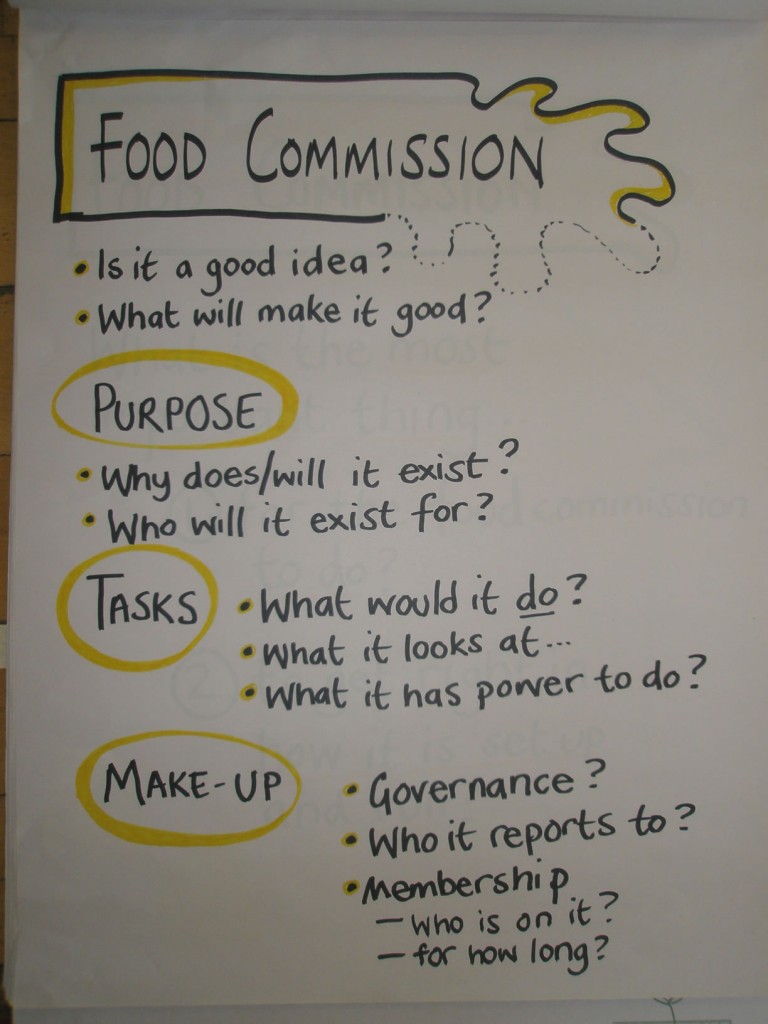 FOOD COMMISSION
• Is it a good idea?
• What will make it good?
PURPOSE
• Why does/will it exist?
• Who will it exist for?
TASKS
• What would it do?
• What it looks at...
• What it has power to do?
MAKE-UP
• Governance?
• Who it reports to?
• Membership
– who is on it?
– for how long?